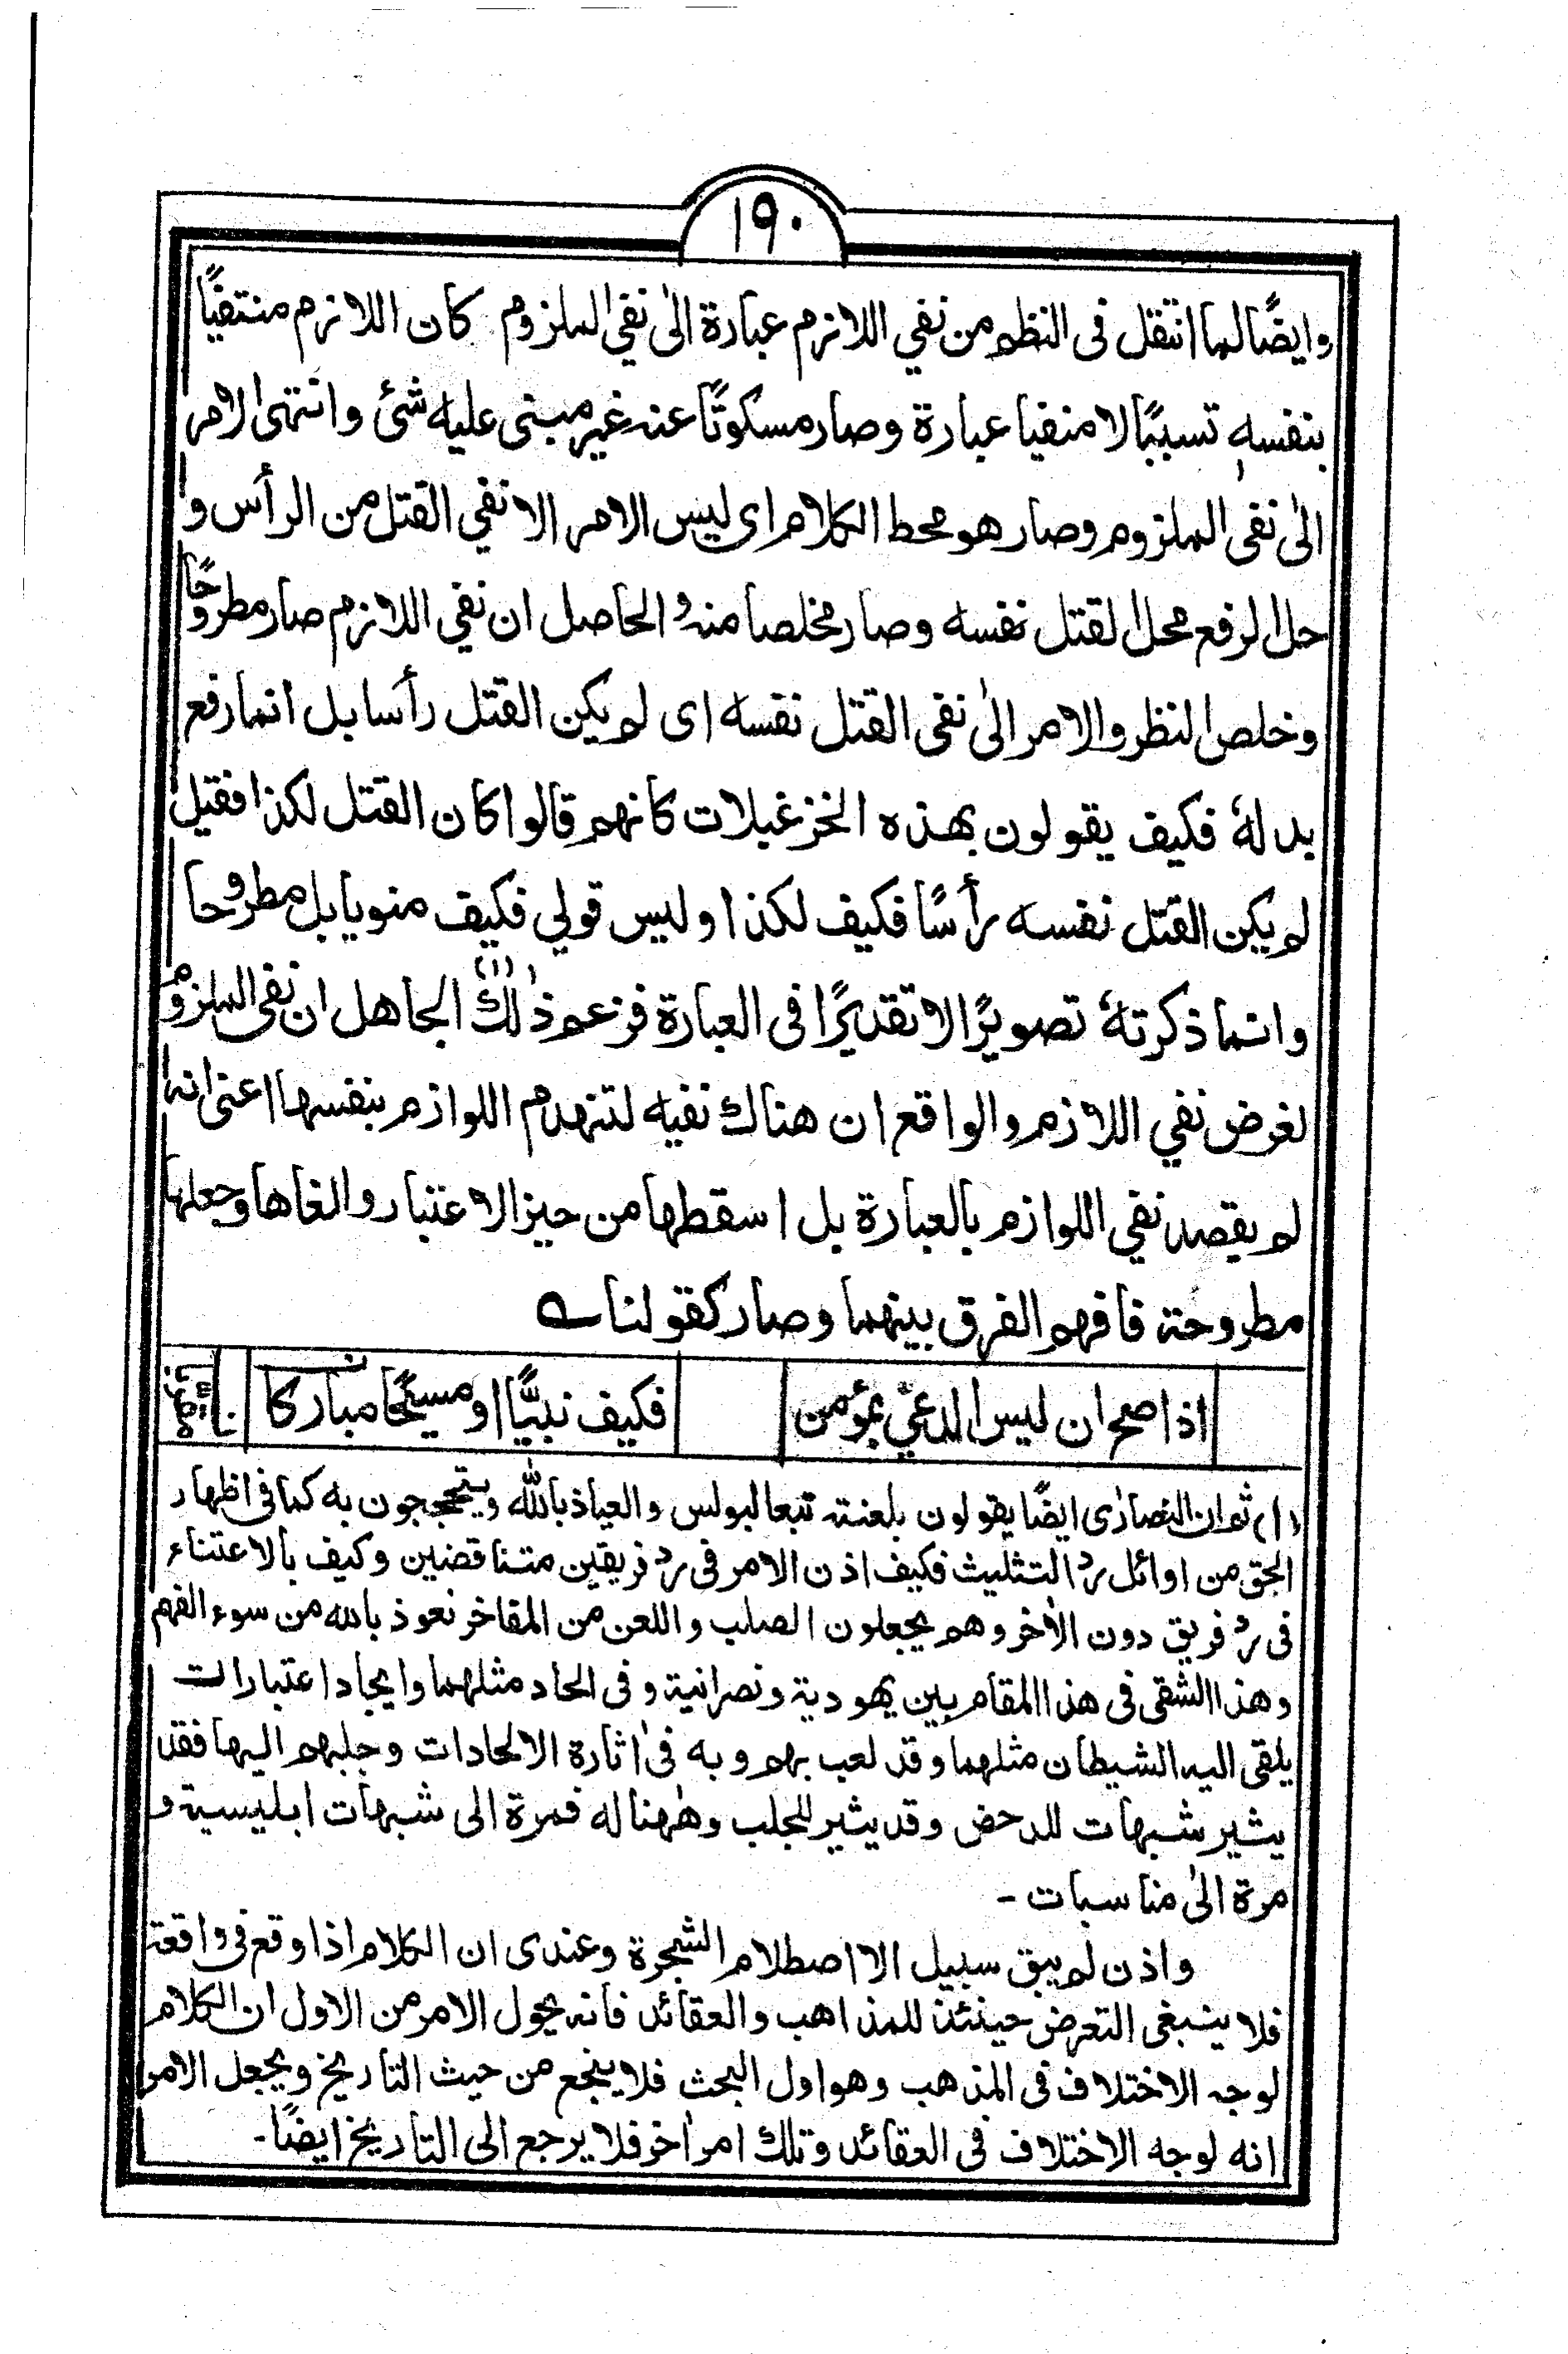 ١٩٠
وايضًا لما انتقل فى النظم من نفي اللازم عبارة الىٰ نفي الملزوم كان اللازم منتفيًا
بنفسهٖ تسببًا لا منفيا عبارة وصار مسكوتًا عنه غير مبنى عليه شئ وانتهىٰ الامر
الىٰ نفى الملزوم وصار هو محط الكلام اى ليس الامر الا نفي القتل من الرأس و
حل الرفع محل القتل نفسه وصار مخلصا منه والحاصل ان نفي اللازم صار مطروحًا
وخلص النظر والامر الىٰ نفى القتل نفسه اى لم يكن القتل رأسا بل انما رفع
بدلهٗ فكيف يقولون بهذه الخزغبلات كانهم قالوا كان القتل لكذا فقيل
لم يكن القتل نفسه رأسًا فكيف لكذا وليس قولي فكيف منويا بل مطروحا
وانما ذكرتهٗ تصويرًا لا تقديرًا فى العبارة فزعم ذٰلك (١) الجاهل ان نفى الملزوم
لغرض نفي اللازم والواقع ان هناك نفيه لتنهدم اللوازم بنفسها اعنى انه
لم يقصد نفي اللوازم بالعبارة بل اسقطها من حيز الاعتبار والغاها وجعلها
مطروحة فافهم الفرق بينهما وصار كقولنا ؎
اذا صح ان ليس الدعيّ بمؤمن فكيف نبيًّا او مسيحًا مباركا
(١) ثم ان النصارٰى ايضًا يقولون بلعنته تبعا لبولس والعياذ بالله ويتحججون به كما فى اظهار
الحق من اوائل رد التثليث فكيف اذن الامر فى رد فريقين متناقضين وكيف بالاعتناء
فى رد فريق دون الاٰخر وهم يجعلون الصلب واللعن من المفاخر نعوذ بالله من سوء الفهم
وهذا الشقى فى هذا المقام بين يهودية ونصرانية وفى الحاد مثلهما وايجاد اعتبارات
يلقى اليه الشيطان مثلهما وقد لعب بهم وبه فى اثارة الالحادات وجلبهم اليها فقد
يثير شبهات للدحض وقد يثير للجلب وهٰهنا له فمرة الى شبهات ابليسية و
مرة الىٰ مناسبات -
واذن لم يبق سبيل الا اصطلام الشجرة وعندى ان الكلام اذا وقع فى واقعة
فلا ينبغى التعرض حينئذ للمذاهب والعقائد فانه يحول الامر من الاول ان الكلام
لوجه الاختلاف فى المذهب وهو اول البحث فلا ينجع من حيث التاريخ ويجعل الامر
انه لوجه الاختلاف فى العقائد وتلك امر اٰخر فلا يرجع الى التاريخ ايضًا-